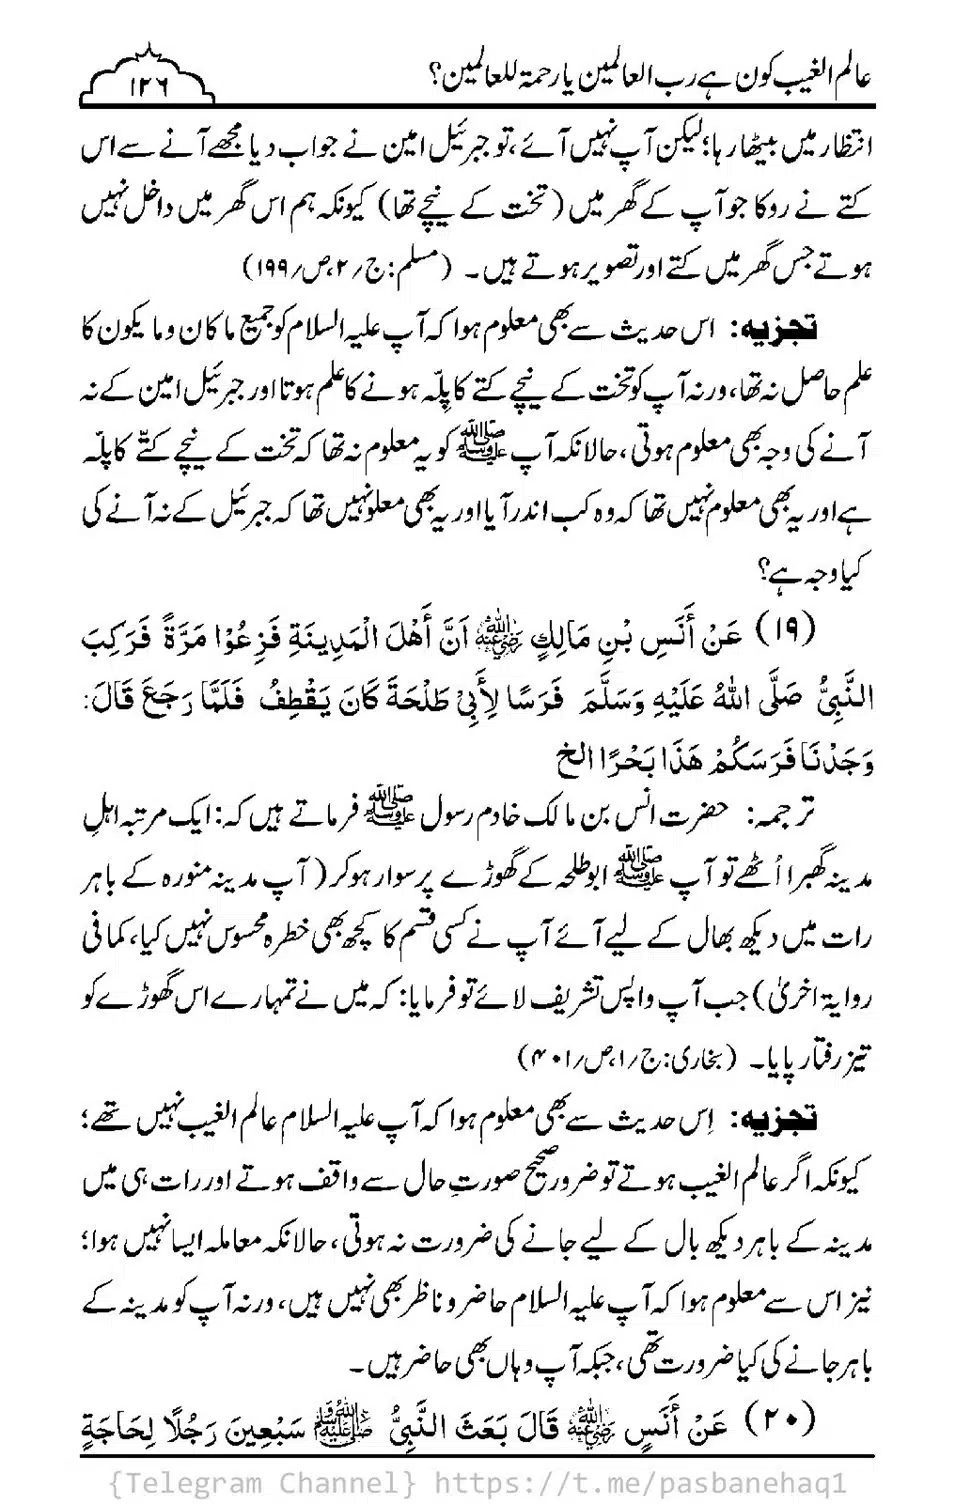 عالم الغیب کون ہے رب العالمین یا رحمۃ للعالمین؟
۱۲۶
انتظار میں بیٹھا رہا؛ لیکن آپ نہیں آئے، تو جبرئیل امین نے جواب دیا مجھے آنے سے اس
کتے نے روکا جو آپ کے گھر میں (تخت کے نیچے تھا) کیونکہ ہم اس گھر میں داخل نہیں
ہوتے جس گھر میں کتے اور تصویر ہوتے ہیں۔ (مسلم: ج/۲، ص/۱۹۹)
تجزیہ: اس حدیث سے بھی معلوم ہوا کہ آپ علیہ السلام کو جمیع ما کان وما یکون کا
علم حاصل نہ تھا، ورنہ آپ کو تخت کے نیچے کتے کا پِلّہ ہونے کا علم ہوتا اور جبرئیل امین کے نہ
آنے کی وجہ بھی معلوم ہوتی، حالانکہ آپ ﷺ کو یہ معلوم نہ تھا کہ تخت کے نیچے کتّے کا پلّہ
ہے اور یہ بھی معلوم نہیں تھا کہ وہ کب اندر آیا اور یہ بھی معلو نہیں تھا کہ جبرئیل کے نہ آنے کی
کیا وجہ ہے؟
(۱۹) عَنْ أَنَسِ بْنِ مَالِكٍ رضی اللہ عنہ اَنَّ أَهْلَ الْمَدِينَةِ فَزِعُوْا مَرَّةً فَرَكِبَ
النَّبِيُّ صَلَّى اللهُ عَلَيْهِ وَسَلَّمَ فَرَسًا لِأَبِيْ طَلْحَةَ كَانَ يَقْطِفُ فَلَمَّا رَجَعَ قَالَ:
وَجَدْنَا فَرَسَكُمْ هَذَا بَحْرًا الخ
ترجمہ: حضرت انس بن مالک خادم رسول ﷺ فرماتے ہیں کہ: ایک مرتبہ اہلِ
مدینہ گھبرا اُٹھے تو آپ ﷺ ابوطلحہ کے گھوڑے پر سوار ہو کر (آپ مدینہ منورہ کے باہر
رات میں دیکھ بھال کے لیے آئے آپ نے کسی قسم کا کچھ بھی خطرہ محسوس نہیں کیا، کما فی
روایۃ اخریٰ) جب آپ واپس تشریف لائے تو فرمایا: کہ میں نے تمہارے اس گھوڑے کو
تیز رفتار پایا۔ (بخاری: ج/۱، ص/۴۰۱)
تجزیہ: اِس حدیث سے بھی معلوم ہوا کہ آپ علیہ السلام عالم الغیب نہیں تھے؛
کیونکہ اگر عالم الغیب ہوتے تو ضرور صحیح صورتِ حال سے واقف ہوتے اور رات ہی میں
مدینہ کے باہر دیکھ بال کے لیے جانے کی ضرورت نہ ہوتی، حالانکہ معاملہ ایسا نہیں ہوا؛
نیز اس سے معلوم ہوا کہ آپ علیہ السلام حاضر و ناظر بھی نہیں ہیں، ورنہ آپ کو مدینہ کے
باہر جانے کی کیا ضرورت تھی، جبکہ آپ وہاں بھی حاضر ہیں۔
(۲۰) عَنْ أَنَسٍ رضی اللہ عنہ قَالَ بَعَثَ النَّبِيُّ ﷺ سَبْعِينَ رَجُلًا لِحَاجَةٍ
{Telegram Channel} https://t.me/pasbanehaq1